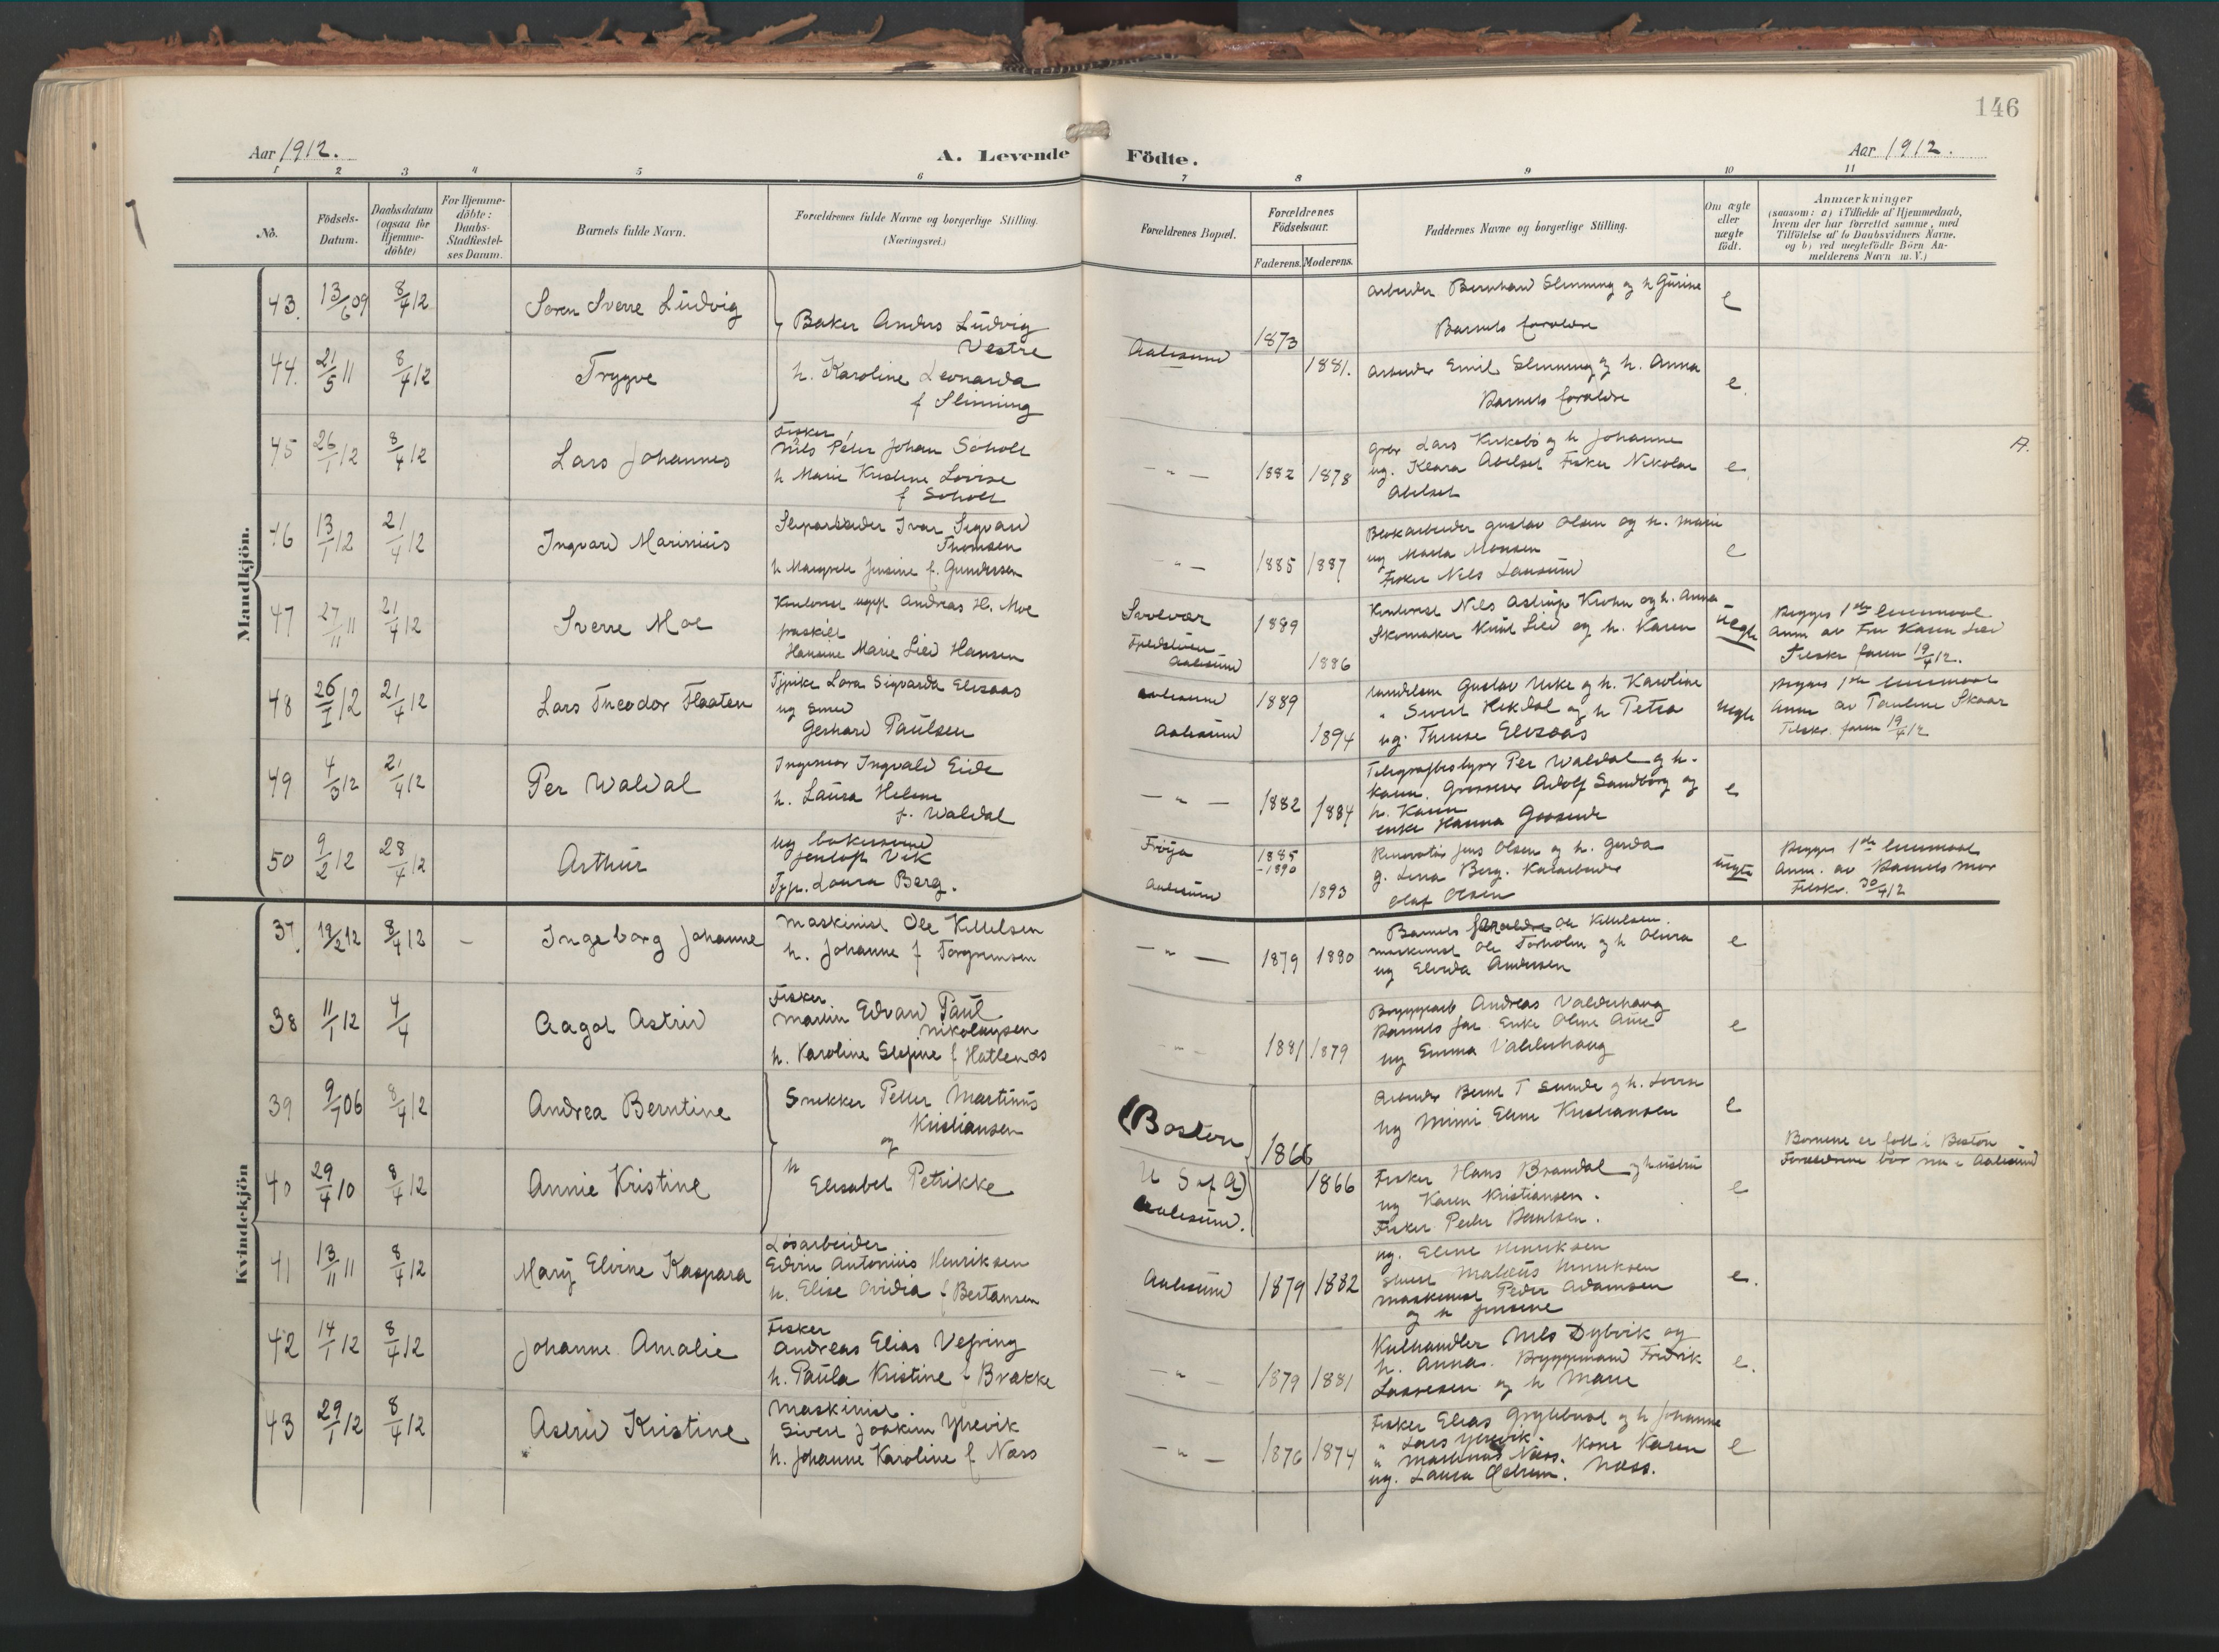 146
Aar 1912.
A. Levende Födte.
Aar 1912.
1 2 3 4 5 6 7 8 9 10 11
No.
Födsels-Datum.
Daabsdatum (ogsaa for Hjemme-döbte)
For Hjemme-döbte: Daabs-Stadfæstel-ses Datum.
Barnets fulde Navn.
Forældrenes fulde Navne og borgerlige Stilling.
(Næringsvei.)
Forældrenes Bopæl.
Forældrenes Födselsaar.
Faderens. Moderens.
Faddernes Navne og borgerlige Stilling.
Om ægte eller uægte födt.
Anmærkninger
(saasom: a) i Tilfælde af Hjemmedaab,
hvem der har forrettet samme, med
Tilföielse af to Daabsvidners Navne.
og b) ved uægtefödte Börn An-
melderens Navn m. V.)
Mandkjön.
43. 13/6 09 8/4 12 Sverre Ludvig
Baker Anders Ludvig
Vestre
h. Karoline Leonarda
f Slinning
Aalesund 1873 1881.
Arbeider Bernhard Slinning og h Gurine
Barnets forældre
e
44. 21/5 11 8/4 12 Trygve
Arbeider Emil Slinning og h. Anna
Barnets forældre
e.
45 26/1 12 8/4 12 Lars Johannes
Fisker
Nils Peter Johan Soholt
h Marie Kristine Lovise
f Soholt
- " - 1882 1878
Lars Kirkebö og h Johanne
ug. Klara Fisker Nikolai
e.
A.
46 13/1 12 21/4 12 Ingvard Marinius
Ivar Sigvard
Thomsen
h Margrete Jensine f. Gundersen
- " - 1885 1887
Gustav Olsen og h. Marie
ug Marta Monsen
Fisker Nils
e
47 27/11 11 21/4 12 Sverre Moe
Kontorist ugift Andreas H. Moe
fraskilt
Hansine Marie Lied Hansen
Svolvær 1889
Aalesund 1886
Kontorist Nils Astrup Krohn og h. Anna
Skomaker Knut Lied og h. Karen
uegte
Begges 1ste leiermaal
Anm av Fru Karen Lied
Tilskr. faren 19/4 12.
48 26/1 12 21/4 12 Lars Theodor Flaaten
Tjpike Lora Sigvarda Elisaas
ug Smed
Gerhard Paulsen
Aalesund 1889
Aalesund 1894
Gustav Uke og h. Karoline
" Sivert Hekdal og h Petra
ug. Therese Elisaas
uegte
Begges 1ste leiermaal
Anm av Pauline Skaar
Tilskr. faren 19/4 12
49 4/3 12 21/4 12 Per Waldal
Ingeniør Ingvald Eide
h. Laura Helene
f. Waldal
- " - 1882 1884
Telegrafbestyrer Per Waldal og h.
Karen. Grosserer Adolf Sandborg og
h. Karen
enke Hanna
e
50 9/2 12 28/4 12 Arthur
ug bakersvend
Jentoft Vik
Tjp. Laura Berg.
Fröya 1885 - 1890
Aalesund 1893
Jens Olsen og h. Gerda
g. Lina Berg.
Olaf Olsen
uegte
Begges 1ste leiermaal
Anm. av Barnets mor
Tilskr. 30/4 12
Kvindekjön
37. 19/2 12 8/4 12 - Ingeborg Johanne
Maskinist Ole Kittelsen
h. Johanne f Torgrimsen
- " - 1879 1880
Barnets forældre Ole Kittelsen.
maskinist Ole Torholm og h Olivia
ug Elvida Andersen
e
38 11/1 12 4/4 Aagot Astrid
Fisker
Martin Edvard Paul
Nikolaysen
h. Karoline Elefine f Hatlenæs
- " - 1881 1879
Andreas Valderhaug
Barnets far Enke Oline Aure
ug Emma Valderhaug
e
39 9/7 06 8/4 12 Andrea Berntine
Snekker Petter Martinus
Kristiansen
og
h
Elisabet Petrikke
(Boston
U S of A)
Aalesund.
1866 1866
Arbeider Bernt T Sunde og h. Lovise
ug Mimi Eline Kristiansen
e
Bornene er födt i Boston
Forældrene bor nu i Aalesund
40 29/4 10 8/4 12 Annie Kristine
Fisker Hans Brandal og hustru
ug Karen Kristiansen.
Fisker Peder Paulsen.
e
41 13/11 11 8/4 12 Mary Elvine Kaspara
Løsarbeider
Edvin Antonius Henriksen
h. Elise Ovidia f Bertansen
Aalesund 1879 1882
ug. Eline Henriksen
Maskinist Peder Adamsen
og h Jensine
e.
42 14/1 12 8/4 12 Johanne Amalie
Fisker
Andreas Elias Vefring
h. Paula Kristine f Brække
- " - 1879 1881
Kulhandler Nils Dybvik og
h. Anna. Bryggemand Fredrik
Lassesen og h Marie
e.
43 29/1 12 8/4 12 Astrid Kristine
Maskinist.
Sivert Joakim Yrevik
h. Johanne Karoline f Næss
- " - 1876 1874
Fisker Elias og h Johanne
" Lars Yrevik.
" Martinus Næss. Kone Karen
ug. Laura Næss.
e